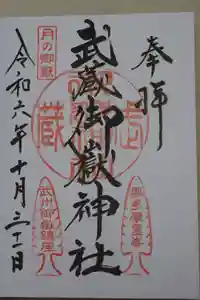 奉拝
武蔵御嶽神社
月の御嶽
令和六年十月三十一日
武州御嶽鎮座